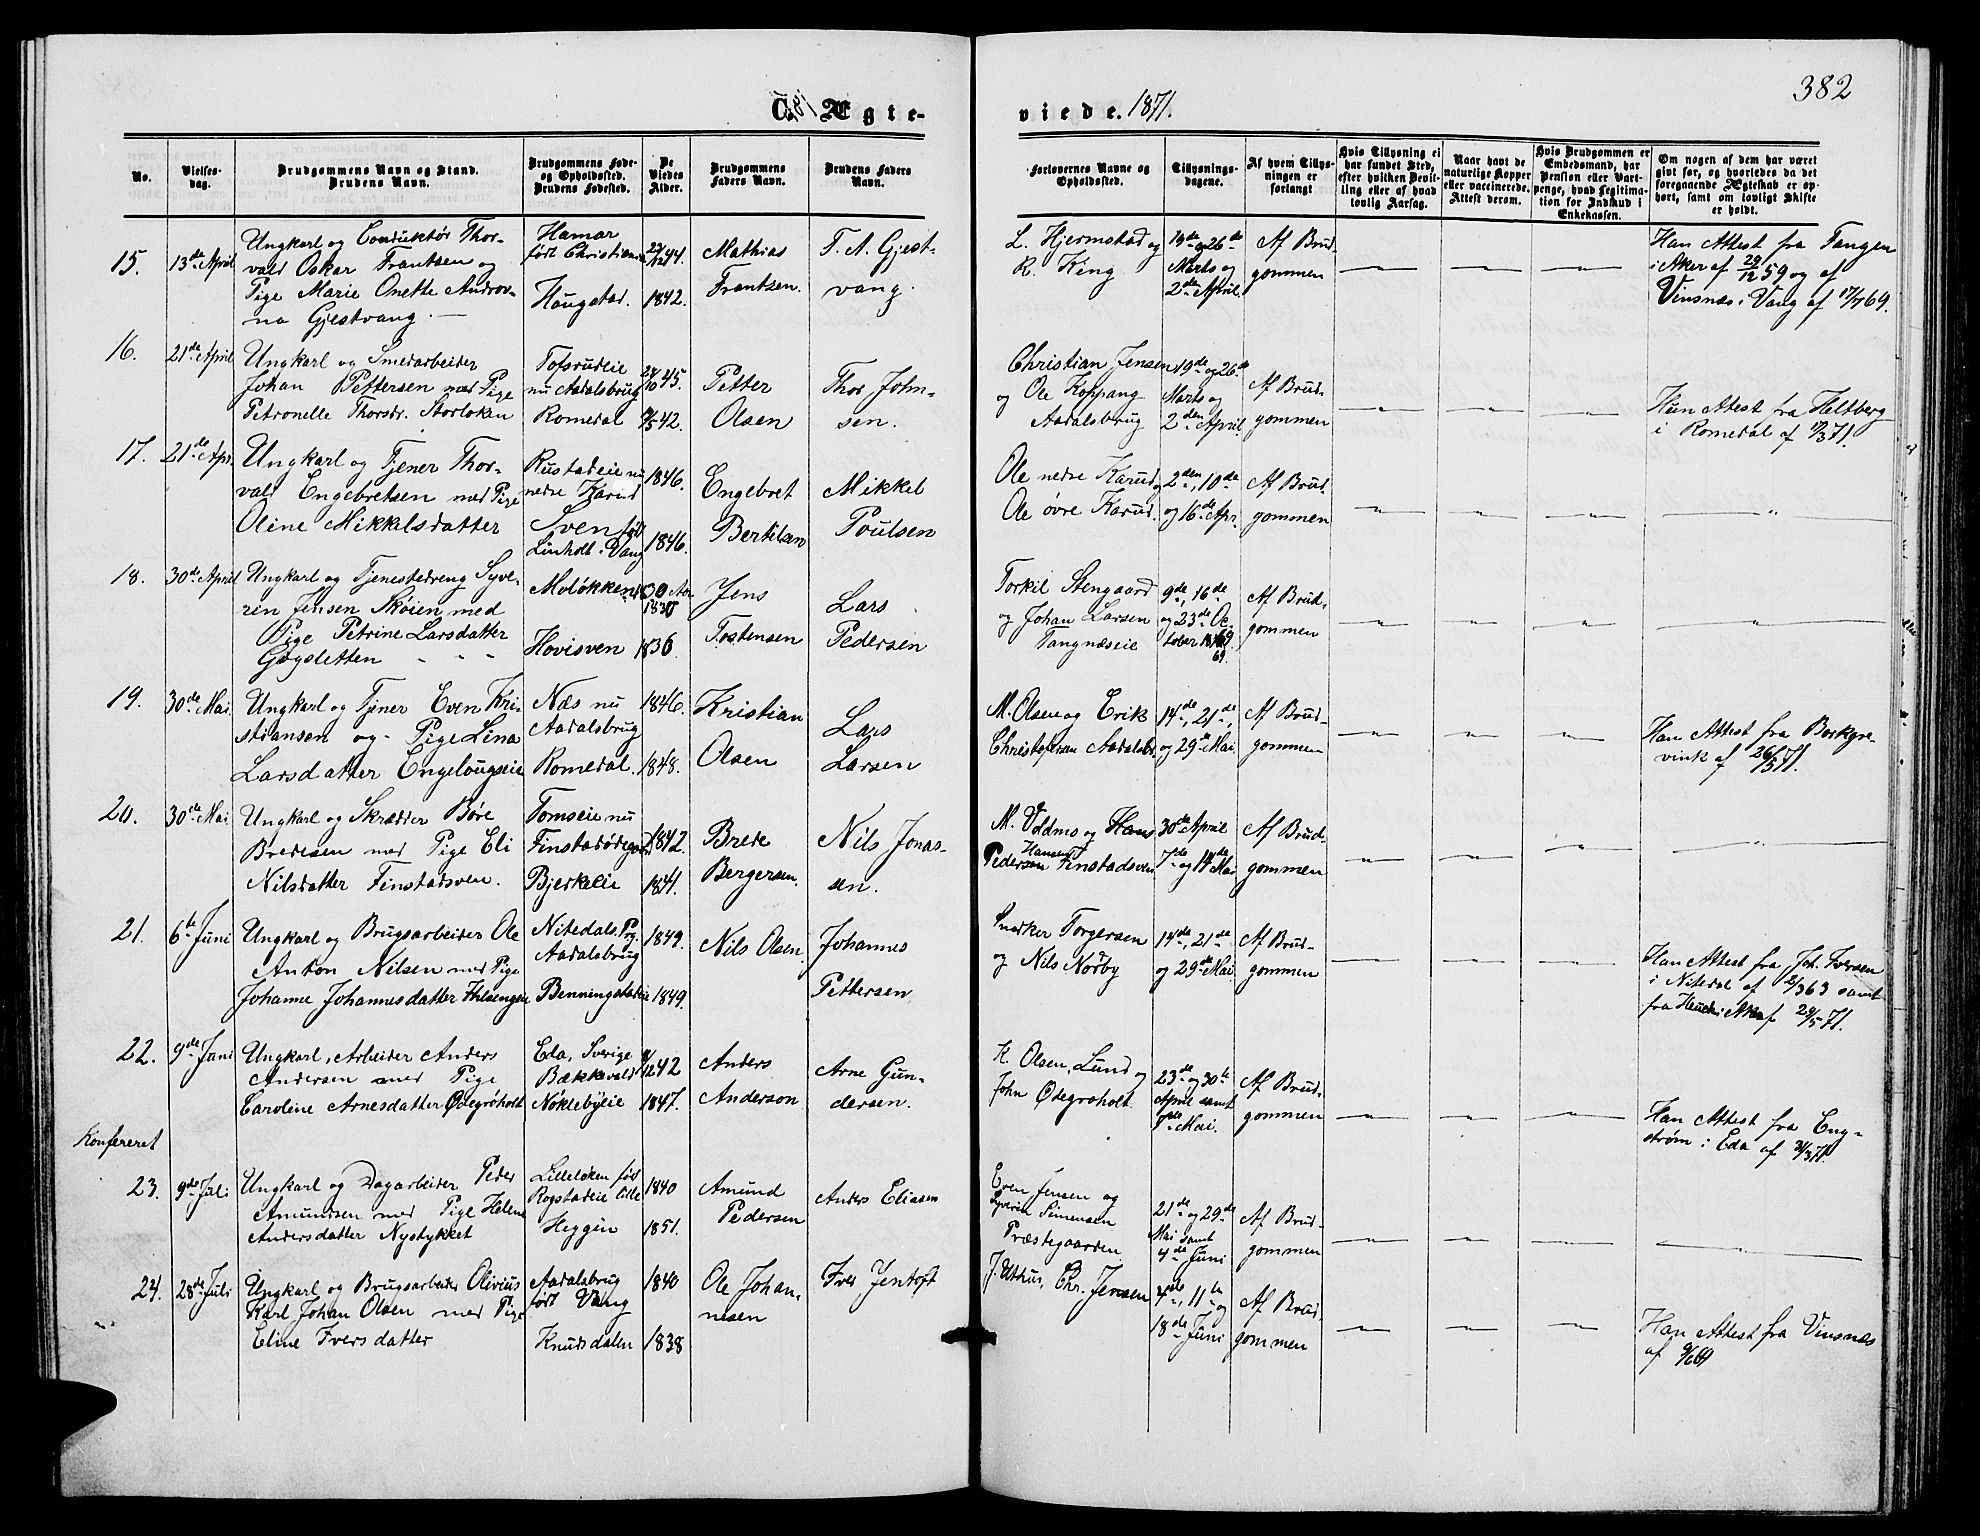 382
C. Ægte-
viede. 1871.
No.
Vielses-
dag.
Brudgommens Navn og Stand.
Brudens Navn.
Brudgommens Føde-
og Opholdssted.
Brudens Fødested.
De
Viedes
Alder.
Brudgommens
Faders Navn.
Brudens Faders
Navn.
Forlovernes Navne og
Opholdssted.
Tillysnings-
dagene.
Af hvem Tillys-
ningen er
forlangt
Hvis Tillysning ei
har fundet Sted,
efter hvilken Bevil-
ling eller af hvad
lovlig Aarsag.
Naar havt de
naturlige Kopper
eller vaccinerede.
Attest derom.
Hvis Brudgommen er
Embedsmand, har
Pension eller Vart-
penge, hvad Legitima-
tion for Indskud i
Enkekassen.
Om nogen af dem har været
givt før, og hvorledes da det
foregaaende Ægteskab er op-
hørt, samt om lovligt Skifte
er holdt.
15. 13de April
Ungkarl og Conduktør Thor-
vald Oskar Frantsen og
Pige Marie Onette Androv-
na Gjestvang.
Hamar
født Christiania
Haugstad.
44.
1842.
Mathias
Frantsen.
T. A. Gjest-
vang.
L. Hjermstad og
R. King
19de og 26de
Marts og
2den April.
Af Brud-
gommen
Han Attest fra Tangen
i Aker af 29/12 59 og af
Vinsnæs i Vang af 17/7 69.
16. 21de April
Ungkarl og Smedarbeider
Johan Pettersen med Pige
Petronelle Thorsdr. Storløken
Tofsrudeie
nu Aadalsbrug
Romedal
45.
42.
Petter
Olsen
Thor John-
sen.
Christian Jensen
og Ole Koppang
Aadalsbrug
19de og 26de
Marts og
2den April.
Af Brud-
gommen
Hun Attest fra Heltberg
i Romedal af 71.
17. 21de Apr.
Ungkarl og Tjener Thor-
vald Engebretsen med Pige
Oline Mikkelsdatter
Rustadeie nu
nedre Karud
Sven født
Linholt i Vang
1846.
1846.
Engebret
Bertelsen
Mikkel
Poulsen
Ole nedre Karud
Ole øvre Karud.
2den, 10de
og 16de Apr.
Af Brud-
gommen
18. 30de April
Ungkarl og Tjenestedreng Syve-
rin Jensen Skøien med
Pige Petrine Larsdatter
Gøgsletten
Moløkken
Hovisven
30 Aar
1830
1836
Jens
Tostensen
Lars
Pedersen
Torkil Stengaard
og Johan Larsen
Tangnæseie
9de, 16de
og 23de Oc-
tober 1869
69.
Af Brud-
gommen
19. 30de Mai
Ungkarl og Tjener Even Kri-
stiansen og Pige Lina
Larsdatter Engelougseie
Næs nu
Aadalsbrug
Romedal.
1846.
1848.
Kristian
Olsen
Lars
Larsen
M. Olsen og Erik
Christofersen Aadalsbr.
14de, 21de,
og 29de Mai.
Af Brud-
gommen
Han Attest fra Borkgre-
vink af 26/5 71.
20. 30de Mai
Ungkarl og Skrædder Børe
Bredesen med Pige Eli
Nilsdatter Finstadsven.
Tomseie nu
Finstadødegaard
Bjerkelie
1842.
1841.
Brede
Bergersen.
Nils Jonas-
sen.
M. Uldmo og Hans
Hansen
Pedersen Finstadsven
30de April
7de og 14de Mai
Af Brud-
gommen
21. 6te Juni
Ungkarl og Brugsarbeider Ole
Anton Nilsen med Pige
Johanne Johannesdatter Ihlsengen
Nitedals Prg.
Aadalsbrug
Benningstadeie
1849.
1849.
Nils Olsen.
Johannes
Pettersen
Snedker Torgersen
og Nils Norby
14de, 21de
og 29de Mai
Af Brud-
gommen
Han Attest fra Joh. Iversen
i Nitedal af 2/3 63 samt
fra Hauch i Aker af 29/5 71.
22. 9de Juni
Ungkarl, Arbeider Anders
Andersen med Pige
Caroline Arnesdatter Ødegroholt
Eda, Sverige
Bækkevald
Nøklebyeie
42
1847.
Anders
Anderson
Arne Gun-
dersen.
K. Olsen, Lund og
John Ødegroholt.
23de og 30te
April samt
7de Mai.
Af Brud-
gommen
Han Attest fra Eng-
strøm i Eda af 71.
Konfereret
23. 9de Juli
Ungkarl og Dagarbeider Peder
Amundsen med Pige Helene
Andersdatter Nystykket
Lilleløken født
Rogstadeie Lille
Heggin
1840
1851.
Amund
Pedersen
Anders Eliasen
Even Jensen og
Syverin Simensen
Præstegaarden
21de og 29de
Mai samt
4de Juni
Af Brud-
gommen
24. 28de Juli
Ungkarl og Brugsarbeider Olivius
Karl Johan Olsen med Pige
Eline Iversdatter
Aadalsbrug
født Vang
Knudsdalen
1840
1838
Ole Johan-
nesen
Iver Jentoft
J. Uthus, Chr. Jensen
4de, 11te og
18de Juni
Af Brud-
gommen
Han Attest fra Vinsnæs
af 9/6 69